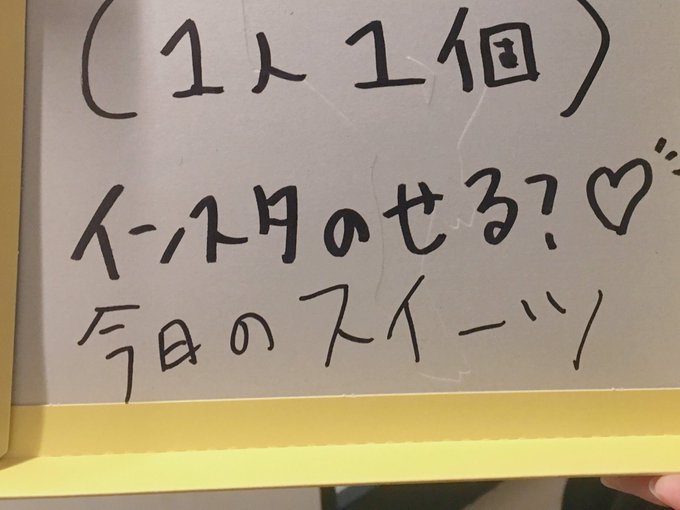 (1人1個)
インスタのせる?♡
今日のスイーツ